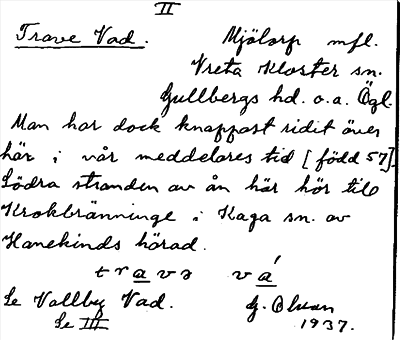 II
Trave Vad. Mjölorp mfl.
Vreta Kloster sn.
Gullbergs hd. o.a. Ögl.
Man har dock knappast ridit över
här i vår meddelares tid [född 57].
Södra stranden av ån här hör till
Krokbränninge i Kaga sn. av
Hanekinds härad.
travə vá
Se Vallby Vad. G. Olson
Se III 1937.